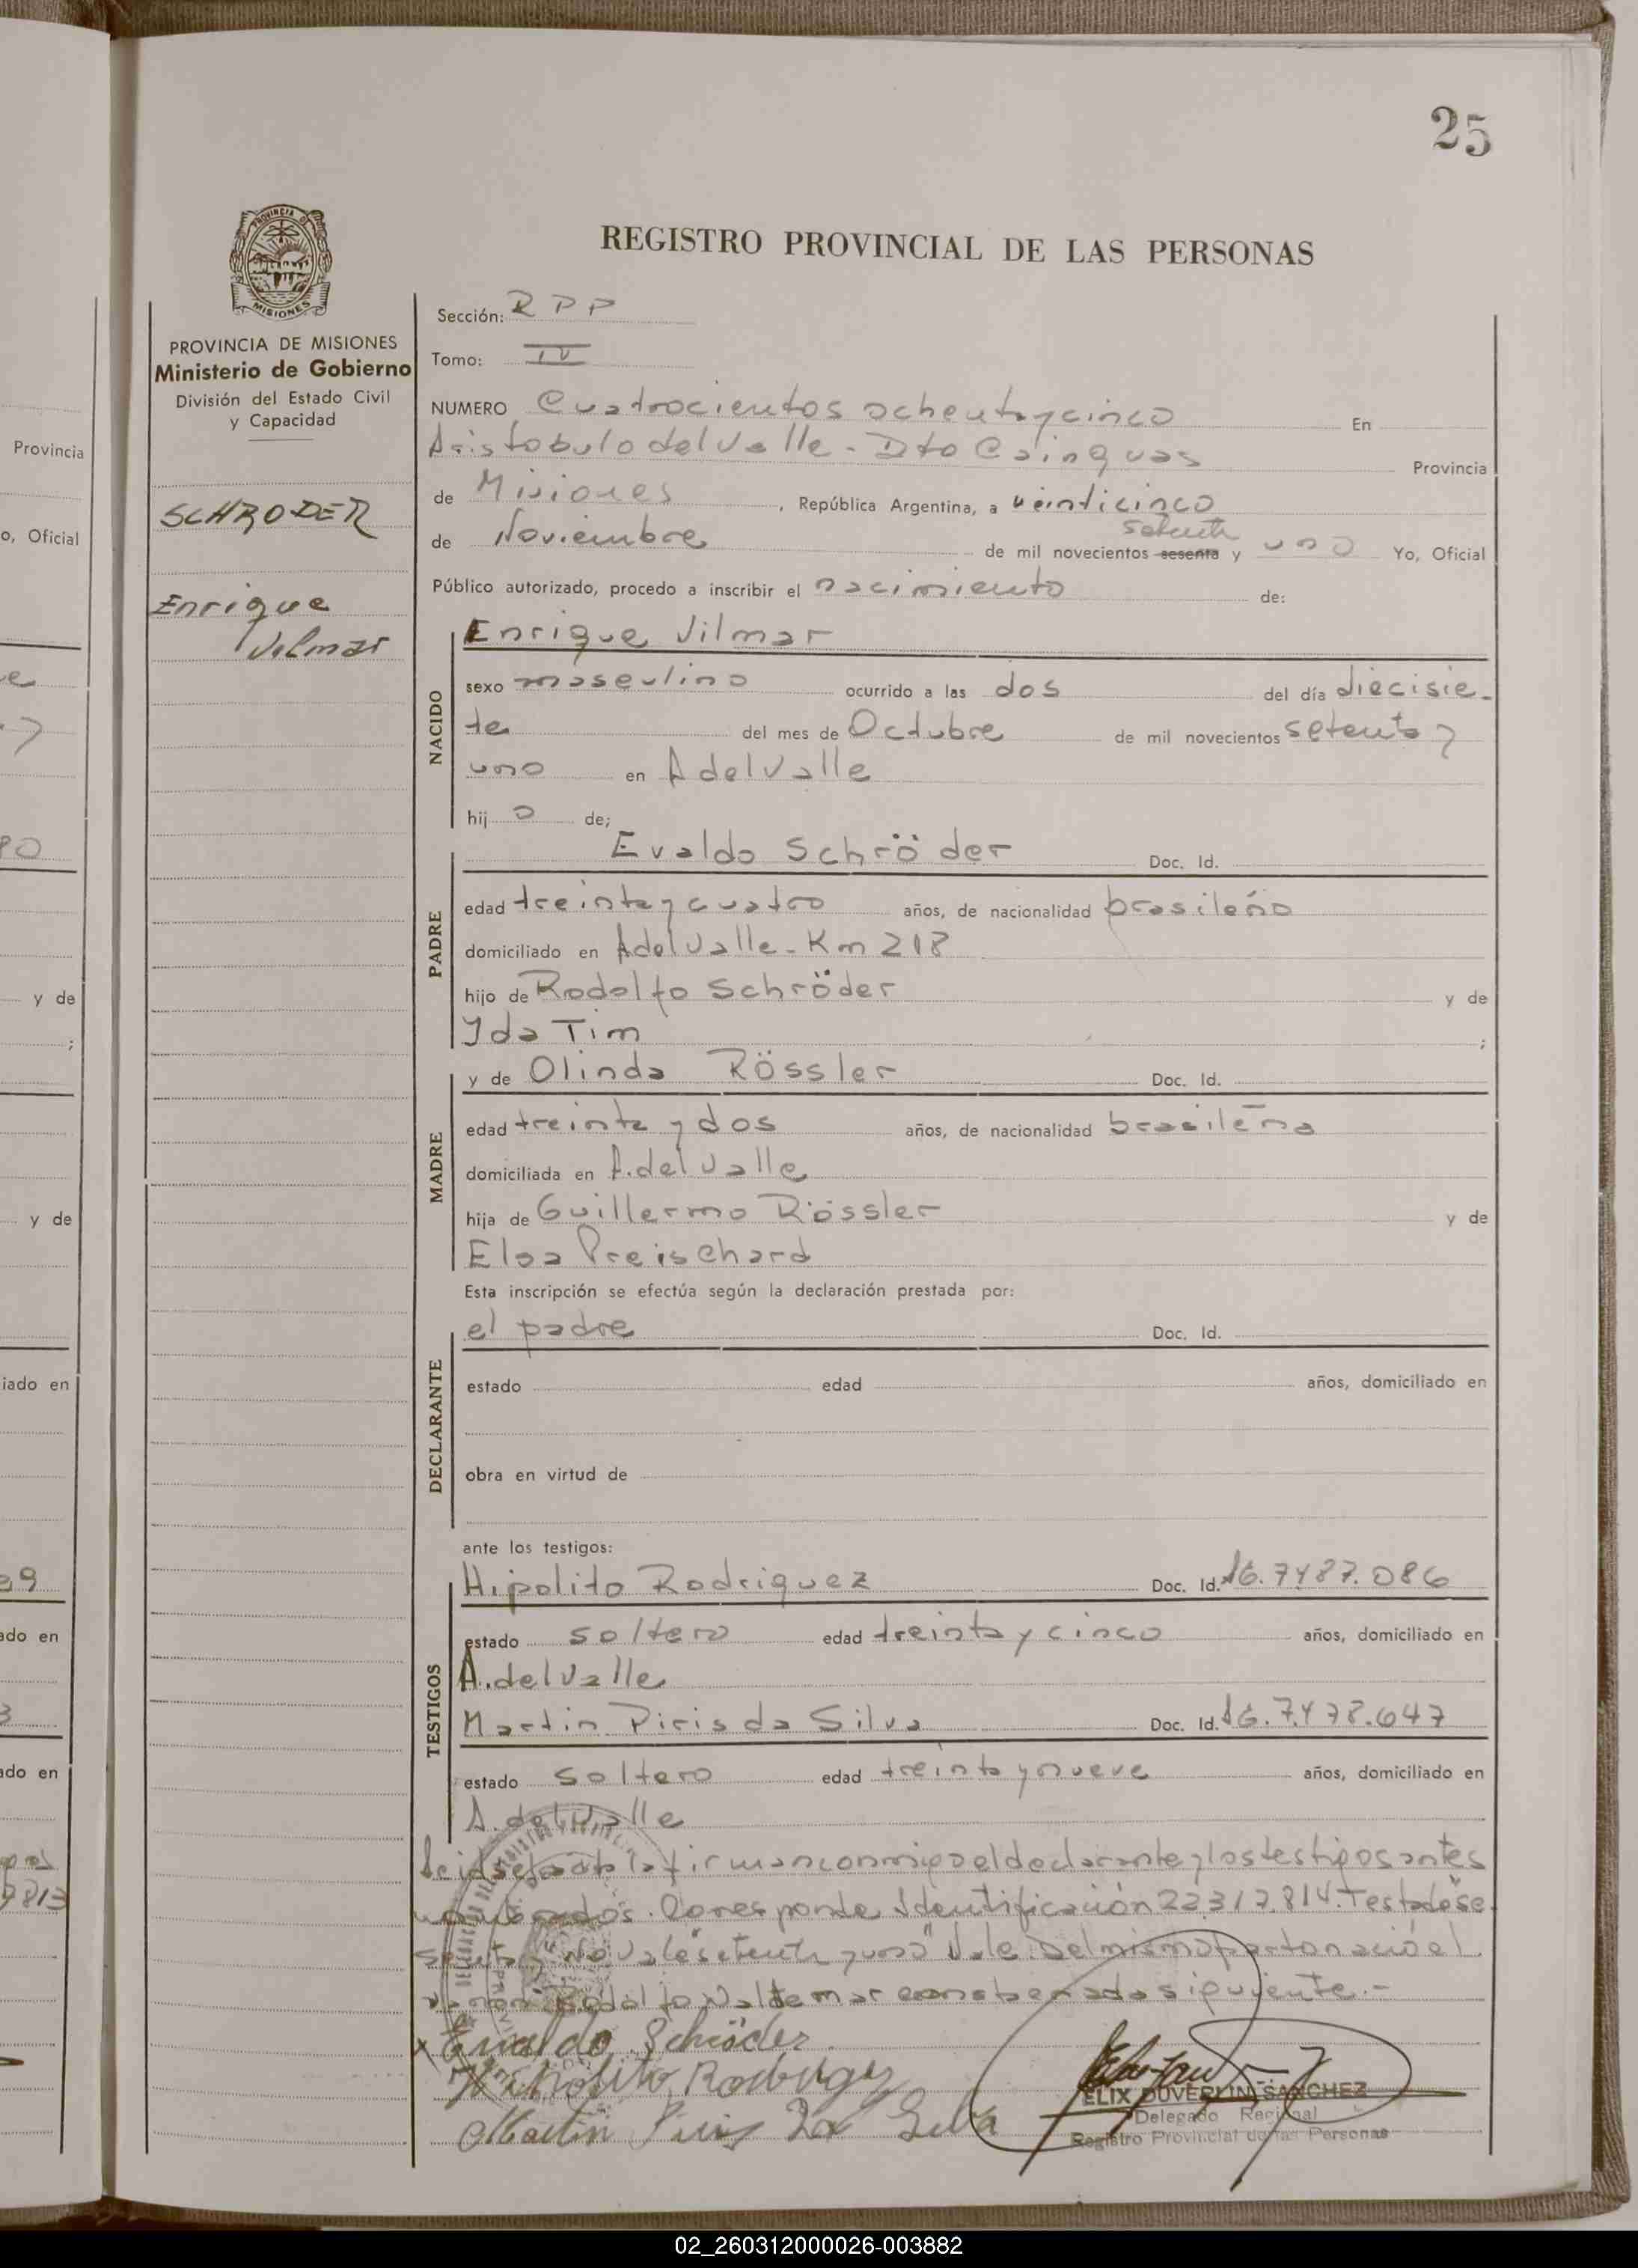 25
REGISTRO PROVINCIAL DE LAS PERSONAS
PROVINCIA DE MISIONES
Ministerio de Gobierno
División del Estado Civil
y Capacidad
SCHRODER
Enrique
Vilmar
Sección: RPP
Tomo: IV
NUMERO Cuatrocientos ochenta y cinco En
Aristobulo del Valle - Dto Cainguas Provincia
de Misiones, República Argentina, a veinticinco
setenta
de Noviembre de mil novecientos sesenta y uno Yo, Oficial
Público autorizado, procedo a inscribir el nacimiento de:
NACIDO
Enrique Vilmar
sexo masculino ocurrido a las dos del día diecisie-
te del mes de Octubre de mil novecientos setenta y
uno en A del Valle
hijo de;
PADRE
Evaldo Schröder Doc. Id.
edad treinta y cuatro años, de nacionalidad brasileño
domiciliado en A del Valle - Km 218
hijo de Rodolfo Schröder y de
Yda Tim ;
MADRE
y de Olinda Rössler Doc. Id.
edad treinta y dos años, de nacionalidad brasileña
domiciliada en A. del Valle
hija de Guillermo Rössler y de
Elsa Preischard
Esta inscripción se efectúa según la declaración prestada por:
DECLARANTE
el padre Doc. Id.
estado edad años, domiciliado en
obra en virtud de
ante los testigos:
TESTIGOS
Hipolito Rodriguez Doc. Id.
estado soltero edad treinta y cinco años, domiciliado en
A. del Valle
Martin Piris da Silva Doc. Id.
estado soltero edad treinta y nueve años, domiciliado en
A. del Valle
Leida el acta la firman conmigo el declarante y los testigos antes
nombrados. Corresponde Identificación 22.317.814. Testado se
No Vale "setenta y uno" Vale. Del mismo parto nació el
varon Rodolfo Waldemar siguiente.-
x Evaldo Schröder
Hipolito Rodriguez
Martin Piris Da Silva
ELIX DUVERLIN SANCHEZ
Delegado Regional
Registro Provincial de las Personas
Provincia
o, Oficial
y de
;
y de
iado en
ado en
ado en
02_260312000026-003882